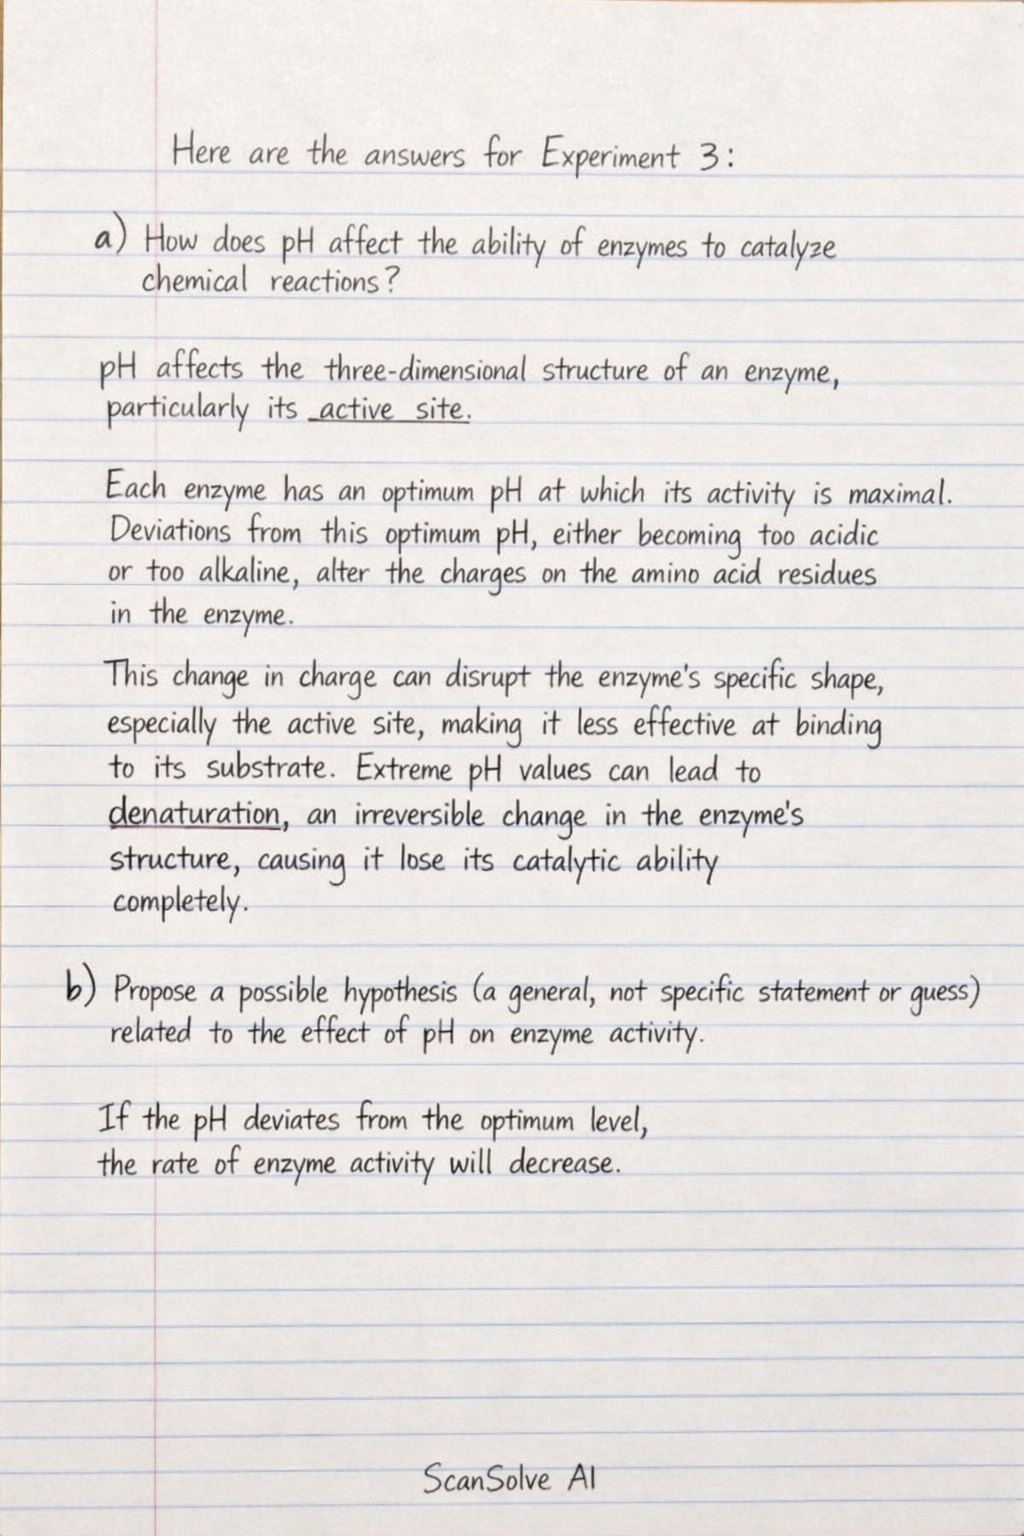 Here are the answers for Experiment 3:
a) How does pH affect the ability of enzymes to catalyze
chemical reactions?
pH affects the three-dimensional structure of an enzyme,
particularly its active site.
Each enzyme has an optimum pH at which its activity is maximal.
Deviations from this optimum pH, either becoming too acidic
or too alkaline, alter the charges on the amino acid residues
in the enzyme.
This change in charge can disrupt the enzyme's specific shape,
especially the active site, making it less effective at binding
to its substrate. Extreme pH values can lead to
denaturation, an irreversible change in the enzyme's
structure, causing it lose its catalytic ability
completely.
b) Propose a possible hypothesis (a general, not specific statement or guess)
related to the effect of pH on enzyme activity.
If the pH deviates from the optimum level,
the rate of enzyme activity will decrease.
ScanSolve AI